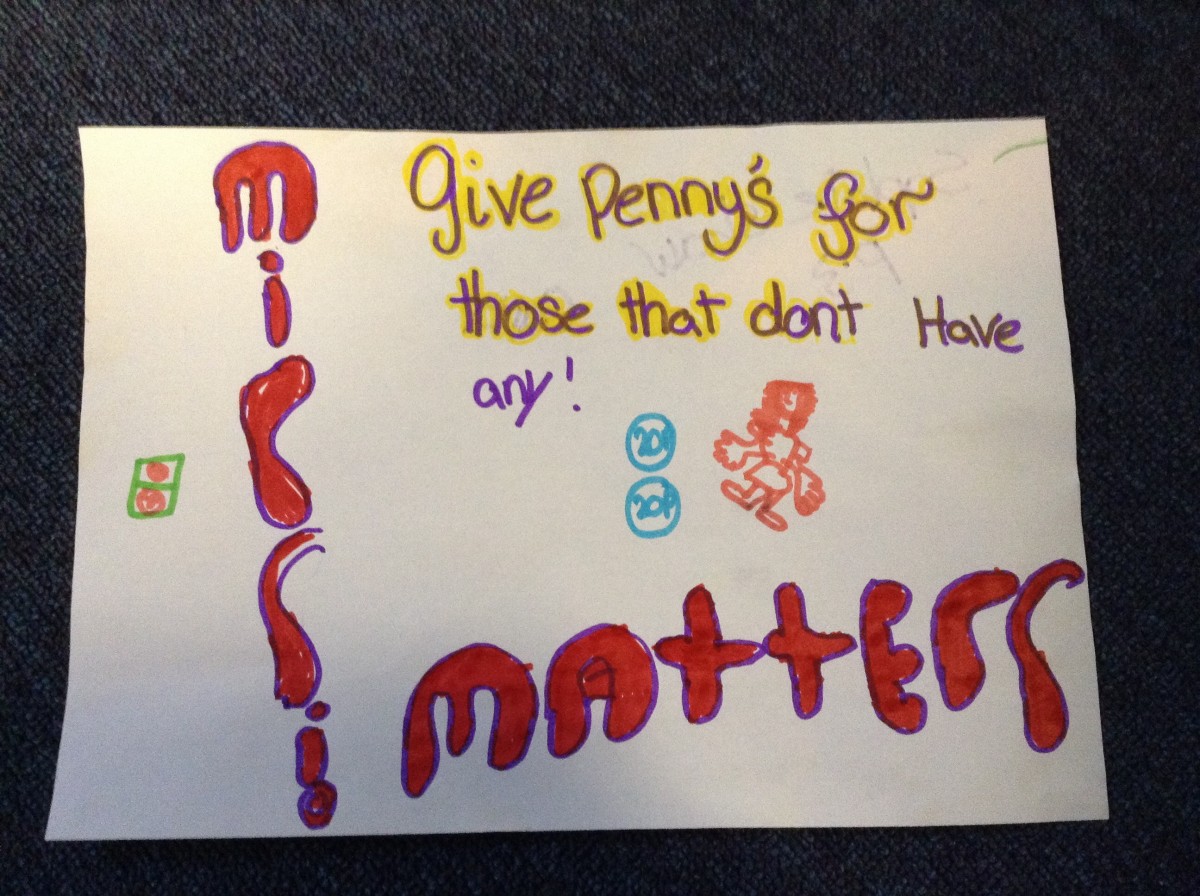 missio
Give penny's for
those that dont Have
any!
20p
20p
mAttErs